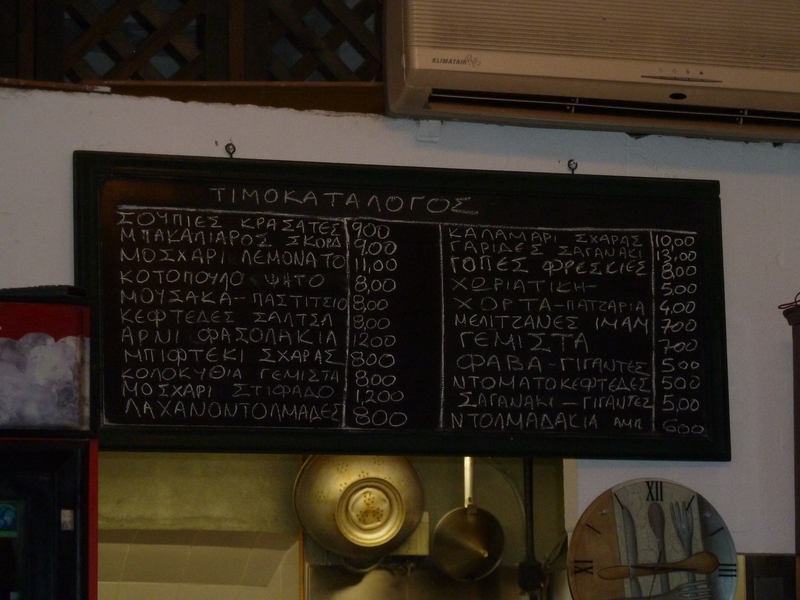 KLIMATAIR
ΤΙΜΟΚΑΤΑΛΟΓΟΣ
ΣΟΥΠΙΕΣ ΚΡΑΣΑΤΕΣ 900
ΜΠΑΚΑΛΙΑΡΟΣ ΣΚΟΡΔ 9,00
ΜΟΣΧΑΡΙ ΛΕΜΟΝΑΤΟ 11,00
ΚΟΤΟΠΟΥΛΟ ΨΗΤΟ 8,00
ΜΟΥΣΑΚΑ-ΠΑΣΤΙΤΣΙΟ 8,00
ΚΕΦΤΕΔΕΣ ΣΑΛΤΣΑ 8,00
ΑΡΝΙ ΦΑΣΟΛΑΚΙΑ 1200
ΜΠΙΦΤΕΚΙ ΣΧΑΡΑΣ 800
ΚΟΛΟΚΥΘΙΑ ΓΕΜΙΣΤΑ 800
ΜΟΣΧΑΡΙ ΣΤΙΦΑΔΟ 1,200
ΛΑΧΑΝΟΝΤΟΛΜΑΔΕΣ 800
ΚΑΛΑΜΑΡΙ ΣΧΑΡΑΣ 10,00
ΓΑΡΙΔΕΣ ΣΑΓΑΝΑΚΙ 13,00
ΓΟΠΕΣ ΦΡΕΣΚΙΕΣ 8,00
ΧΩΡΙΑΤΙΚΗ- 5,00
ΧΟΡΤΑ-ΠΑΤΖΑΡΙΑ 4,00
ΜΕΛΙΤΖΑΝΕΣ ΙΜΑΜ 700
ΓΕΜΙΣΤΑ 700
ΦΑΒΑ-ΓΙΓΑΝΤΕΣ 500
ΝΤΟΜΑΤΟΚΕΦΤΕΔΕΣ 500
ΣΑΓΑΝΑΚΙ-ΓΙΓΑΝΤΕΣ 5,00
ΝΤΟΛΜΑΔΑΚΙΑ ΑΜΠ 600
XII
IX
III